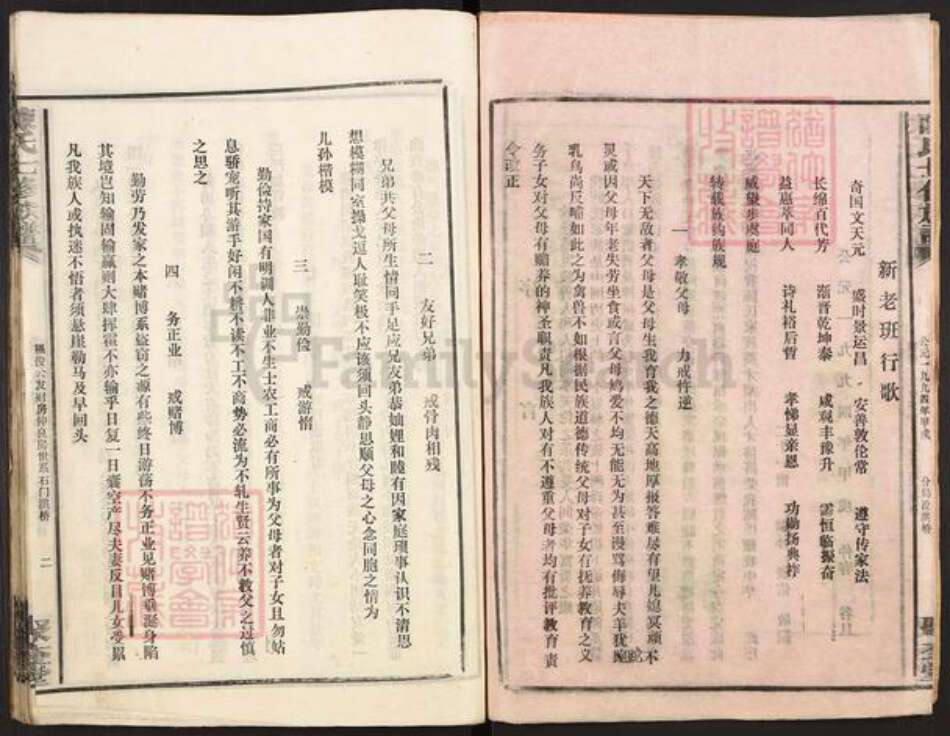 新老班行歌
奇国文天元 盛时景运昌 安善敦伦常 遵守传家法
长绵百代芳 渐晋乾坤泰 咸观丰豫升 需恒临振奋
益惠萃同人 诗礼裕后晋 孝悌显亲恩 功勋扬典梓
威望步虞庭
转载族约族规
一 孝敬父母 力戒忤逆
天下无敌者父母是父母生我育我之德天高地厚报答难尽有望儿媳冥顽不
灵或因父母年老失劳坐食或言父母妈爱不均无能无为甚至漫骂侮辱夫羊我跪
乳乌尚反哺如此之为禽兽不如根据民族道德传统父母对子女有抚养教育之义
务子女对父母有赡养的神圣职责凡我族人对有不遵重父母者均有批评教育责
令改正
公元一九九四年甲戌
二 友好兄弟 戒骨肉相残
兄弟共父母所生情同手足应兄友弟恭妯娌和睦有因家庭琐事认识不清恩
想模糊同室操戈逗人耻笑极不应该须回头静思顺父母之心念同胞之情为
儿孙楷模
三 崇勤俭 戒游惰
勤俭持家国有明训人非业不生士农工商必有所事为父母者对子女且勿姑
息骄宠听其游手好闲不耕不读不工不商势必流为不轨生贤云养不教父之过慎
之思之
四 务正业 戒赌博
勤劳乃发家之本赌博系盗窃之源有些终日游荡不务正业见赌博垂涎身陷
其境岂知输固输赢则大肆挥霍不亦输乎日复一日囊空产尽夫妻反目儿女受累
凡我族人或执迷不悟者须悬崖勒马及早回头
二
FamilySearch